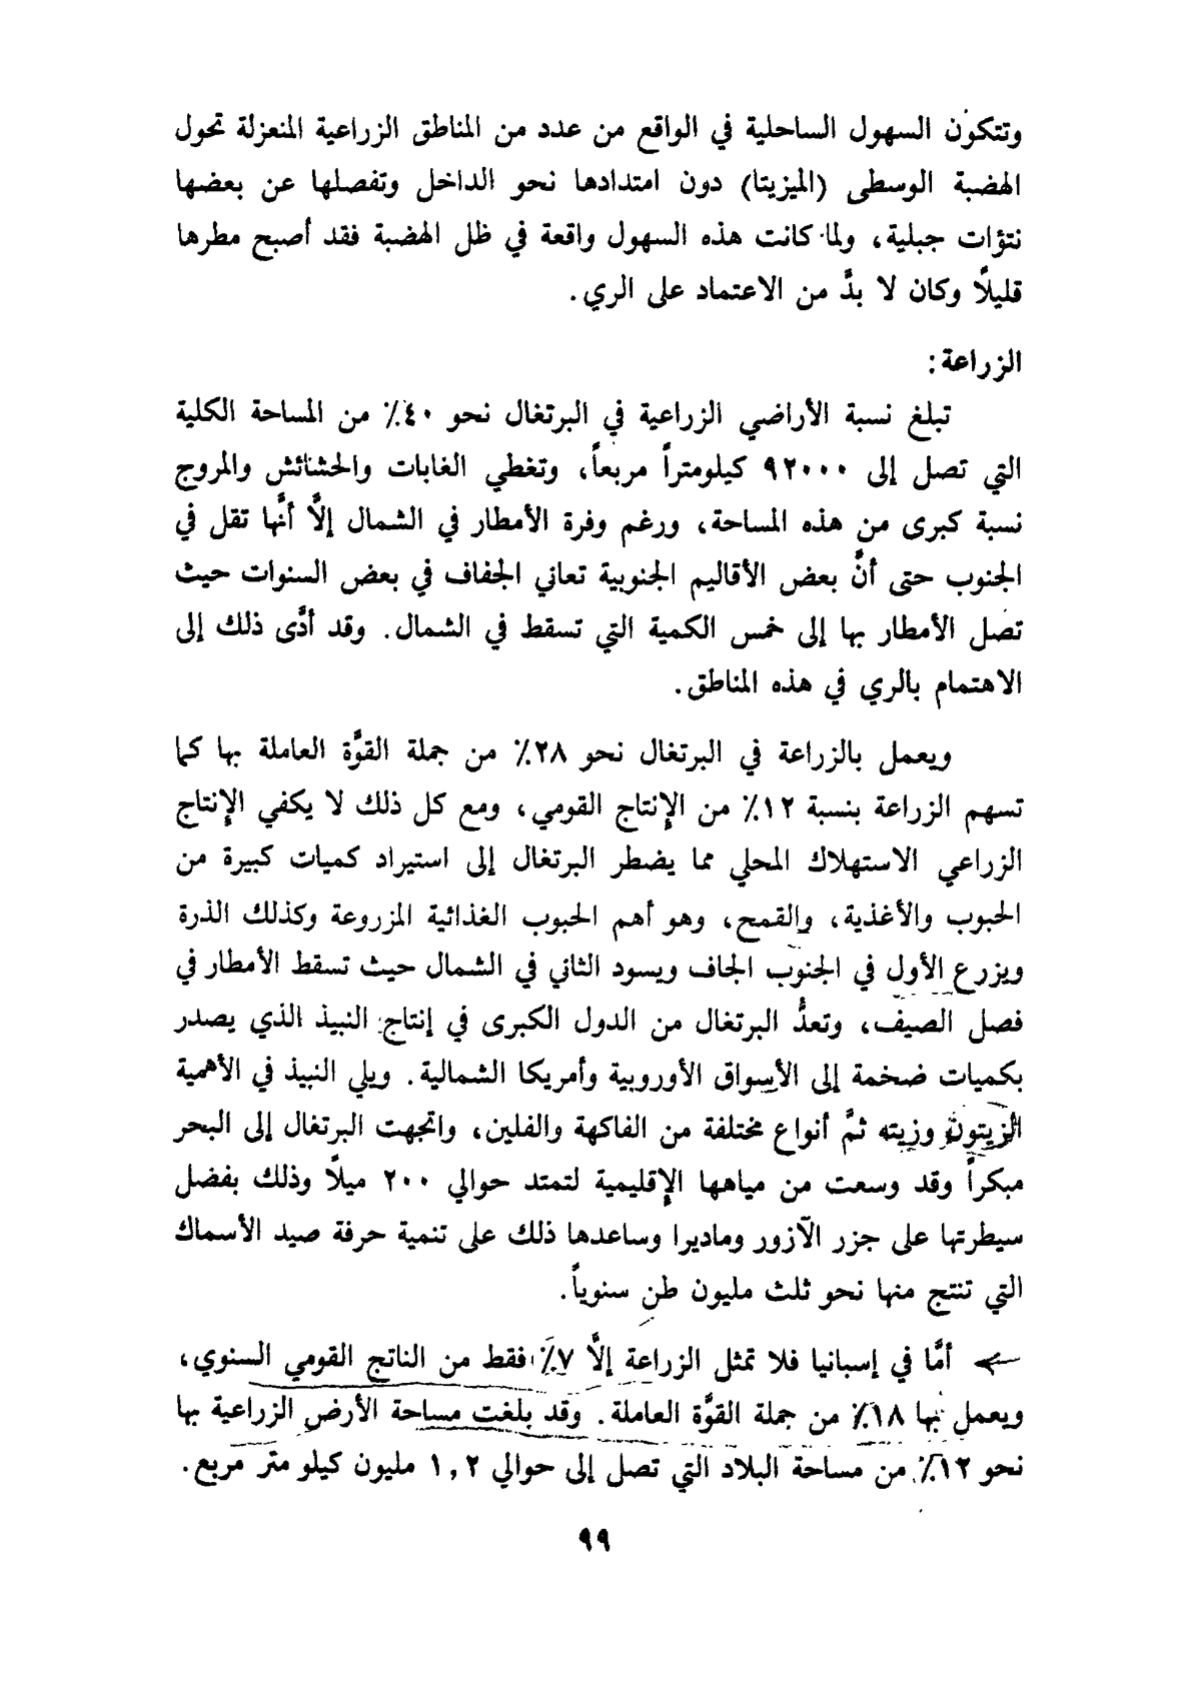 وتتكون السهول الساحلية في الواقع من عدد من المناطق الزراعية المنعزلة تحول
الهضبة الوسطى (الميزيتا) دون امتدادها نحو الداخل وتفصلها عن بعضها
نتؤات جبلية، ولما كانت هذه السهول واقعة في ظل الهضبة فقد أصبح مطرها
قليلاً وكان لا بدَّ من الاعتماد على الري.
الزراعة:
تبلغ نسبة الأراضي الزراعية في البرتغال نحو ٤٠٪ من المساحة الكلية
التي تصل إلى ٩٢٠٠٠ كيلومتراً مربعاً، وتغطي الغابات والحشائش والمروج
نسبة كبرى من هذه المساحة، ورغم وفرة الأمطار في الشمال إلَّا أنَّها تقل في
الجنوب حتى أنَّ بعض الأقاليم الجنوبية تعاني الجفاف في بعض السنوات حيث
تصل الأمطار بها إلى خمس الكمية التي تسقط في الشمال. وقد أدَّى ذلك إلى
الاهتمام بالري في هذه المناطق.
ويعمل بالزراعة في البرتغال نحو ٢٨٪ من جملة القوَّة العاملة بها كما
تسهم الزراعة بنسبة ١٢٪ من الإنتاج القومي، ومع كل ذلك لا يكفي الإنتاج
الزراعي الاستهلاك المحلي مما يضطر البرتغال إلى استيراد كميات كبيرة من
الحبوب والأغذية، والقمح، وهو أهم الحبوب الغذائية المزروعة وكذلك الذرة
ويزرع الأول في الجنوب الجاف ويسود الثاني في الشمال حيث تسقط الأمطار في
فصل الصيف، وتعدُّ البرتغال من الدول الكبرى في إنتاج النبيذ الذي يصدر
بكميات ضخمة إلى الأسواق الأوروبية وأمريكا الشمالية. ويلي النبيذ في الأهمية
الزيتون وزيته ثمَّ أنواع مختلفة من الفاكهة والفلين، واتجهت البرتغال إلى البحر
مبكراً وقد وسعت من مياهها الإقليمية لتمتد حوالي ٢٠٠ ميلاً وذلك بفضل
سيطرتها على جزر الآزور وماديرا وساعدها ذلك على تنمية حرفة صيد الأسماك
التي تنتج منها نحو ثلث مليون طن سنوياً.
أمَّا في إسبانيا فلا تمثل الزراعة إلَّا ٧٪ فقط من الناتج القومي السنوي،
ويعمل بها ١٨٪ من جملة القوَّة العاملة. وقد بلغت مساحة الأرض الزراعية بها
نحو ١٢٪ من مساحة البلاد التي تصل إلى حوالي ١,٢ مليون كيلو متر مربع.
٩٩